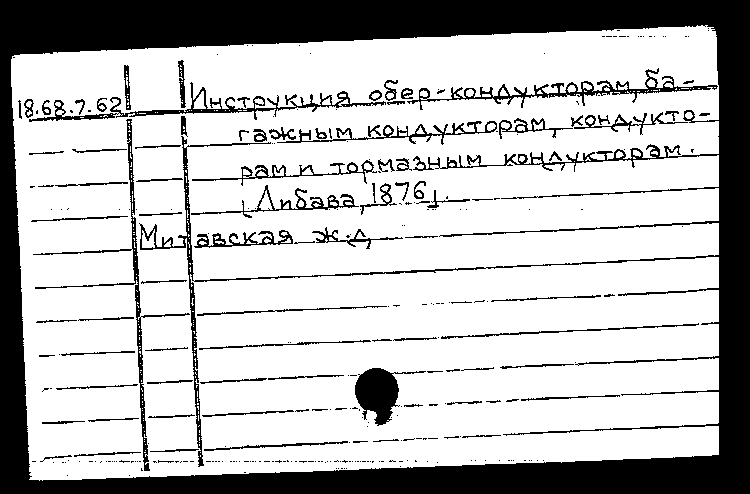 18.68.7.62 Инструкция обер-кондукторам, ба-
гажным кондукторам, кондукто-
рам и тормазным кондукторам.
[Либава, 1876].
Митавская ж.д.